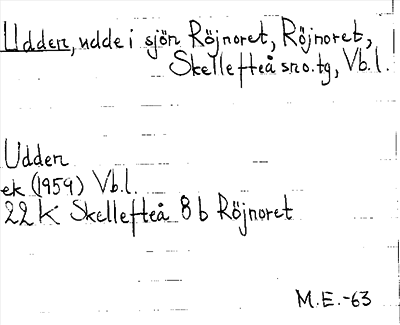 Udden, udde i sjön Röjnoret, Röjnoret,
Skellefteå sn o. tg, Vb. l.
Udden
ek (1959) Vb. l.
22 K Skellefteå 8 b Röjnoret
M.E.-63